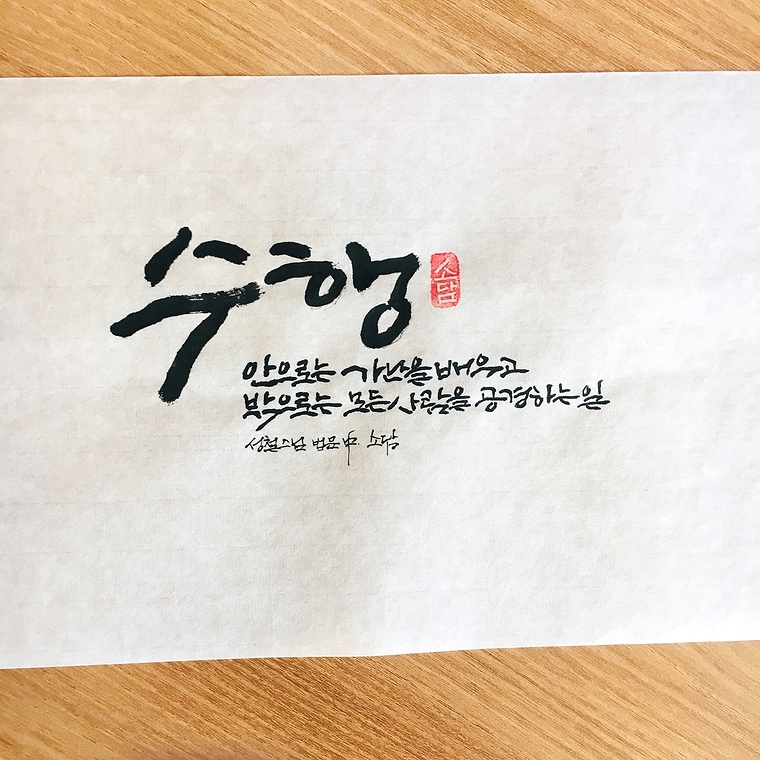 수행
소담
안으로는 가난을 배우고
밖으로는 모든 사람을 공경하는 일
성철스님 법문 中 소담